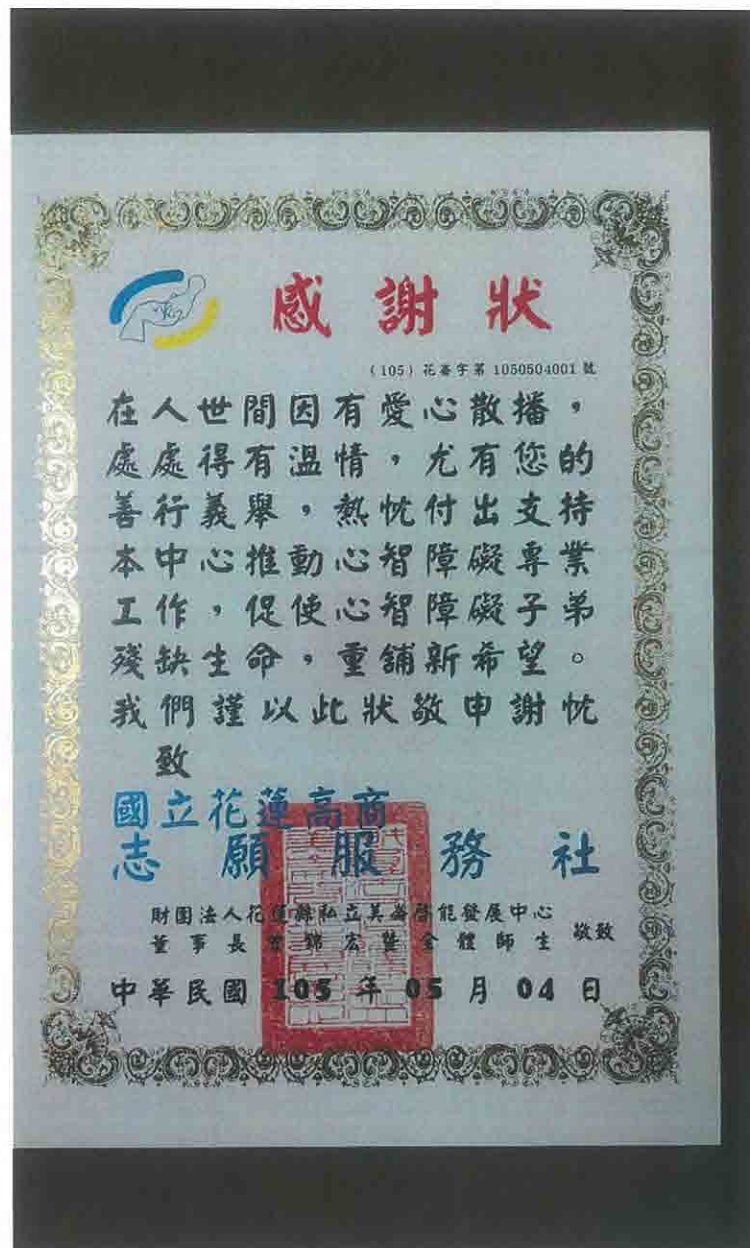 感謝狀
(105)花善字第1050504001號
在人世間因有愛心散播，
處處得有溫情，尤有您的
善行義舉，熱忱付出支持
本中心推動心智障礙專業
工作，促使心智障礙子弟
殘缺生命，重舖新希望。
我們謹以此狀敬申謝忱
致
國立花蓮高商
志願服務社
財團法人花蓮縣私立美崙啓能發展中心
董事長 錦宏暨全體師生 敬致
中華民國 105 年 05 月 04 日